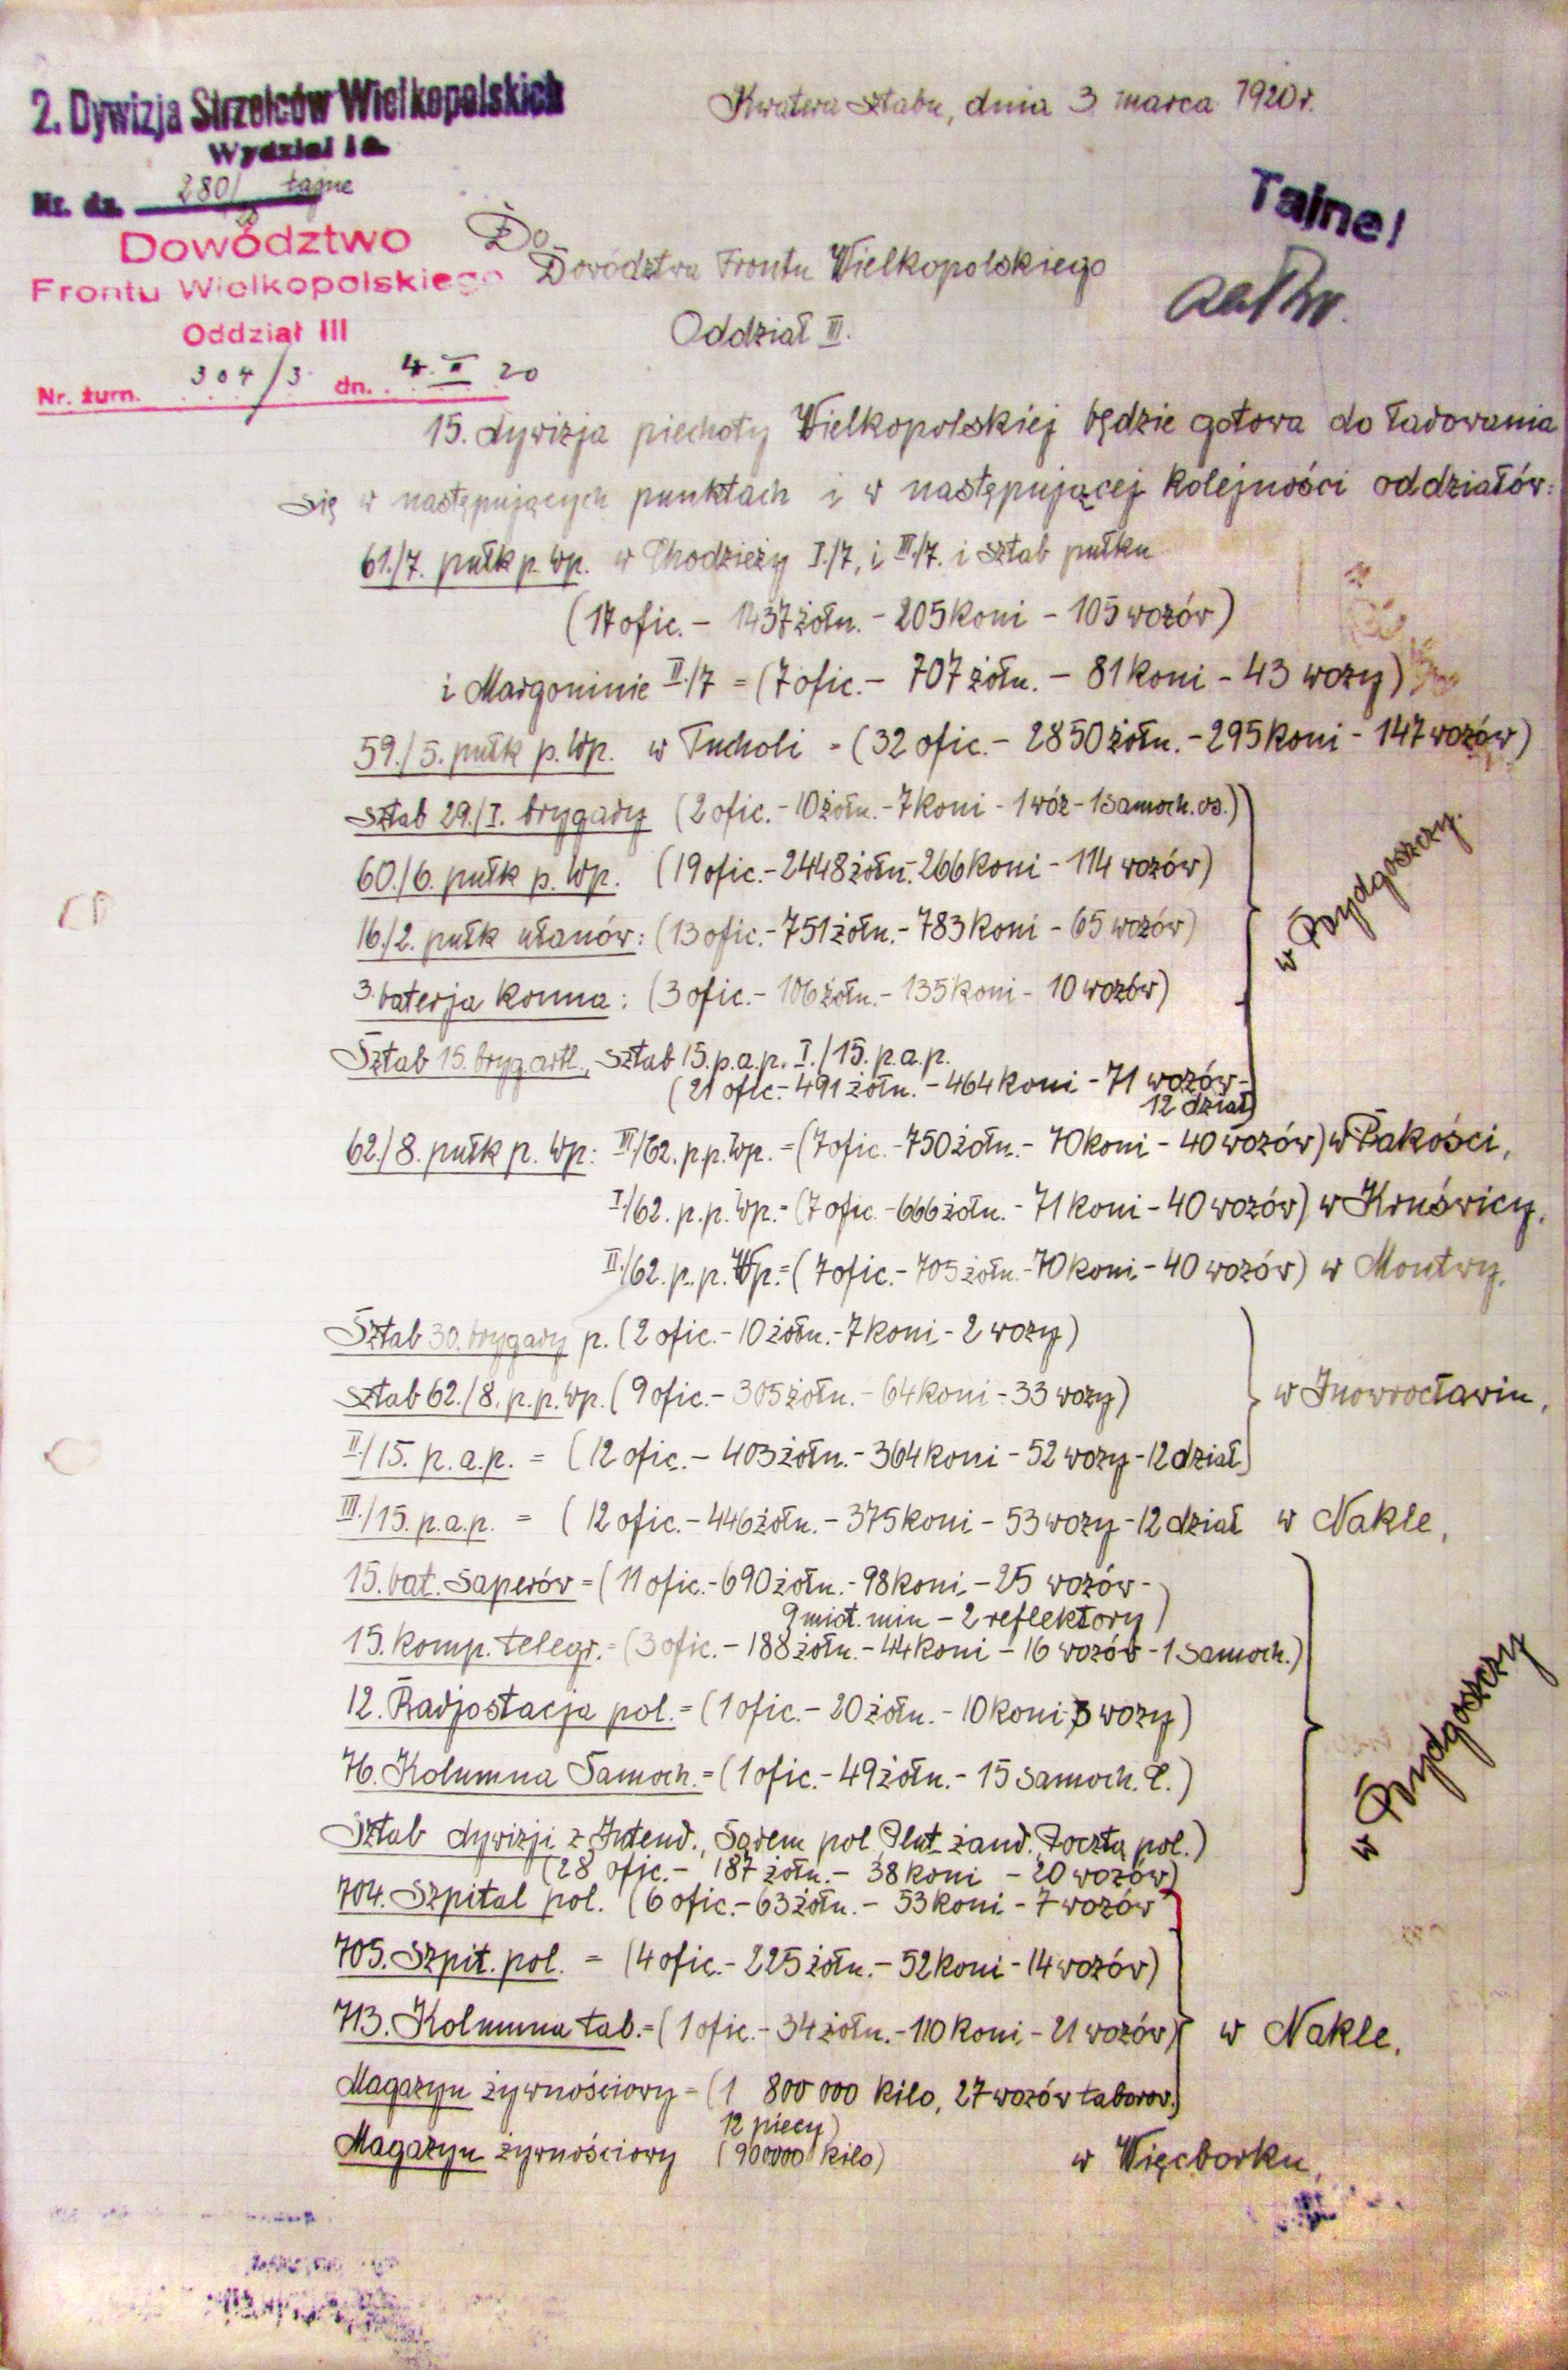 2. Dywizja Strzelców Wielkopolskich
Wydział I a.
Nr. dz. 280/ tajne
Kwatera Sztabu, dnia 3 marca 1920 r.
Tajne!
Dowództwo
Frontu Wielkopolskiego
Oddział III
Nr. żurn. 304/3 dn. 4. 20
Do
Dowództwa Frontu Wielkopolskiego
Oddział III.
15. dywizja piechoty Wielkopolskiej będzie gotowa do ładowania
się w następujących punktach i w następującej kolejności oddziałów:
61./7. pułk p. Wp. w Chodzieży I./7, i III./7. i sztab pułku
(17 ofic. – 1437 żołn. – 205 koni – 105 wozów)
i Margoninie II./7 = (7 ofic. – 707 żołn. – 81 koni – 43 wozy)
59./5. pułk p. Wp. w Tucholi = (32 ofic. – 2850 żołn. – 295 koni – 147 wozów)
sztab 29./I. brygady (2 ofic. – 10 żołn. – 7 koni – 1 wóz – 1 samoch. os.)
60./6. pułk p. Wp. (19 ofic. – 2448 żołn. – 266 koni – 114 wozów)
16./2. pułk ułanów: (13 ofic. – 751 żołn. – 783 koni – 65 wozów)
w Bydgoszczy.
3. baterja konna: (3 ofic. – 106 żołn. – 135 koni – 10 wozów)
Sztab 15. bryg. artl., sztab 15. p.a.p. I./15. p.a.p.
(21 ofic. – 491 żołn. – 464 koni – 71 wozów –
12 dział)
62./8. pułk p. Wp: III/62. p.p. Wp. = (7 ofic. – 750 żołn. – 70 koni – 40 wozów) w Pakości,
I/62. p.p. Wp. = (7 ofic. – 666 żołn. – 71 koni – 40 wozów) w Kruświcy,
II./62. p.p. Wp. = (7 ofic. – 705 żołn. – 70 koni – 40 wozów) w Montwy,
Sztab 30. brygady p. (2 ofic. – 10 żołn. – 7 koni – 2 wozy)
sztab 62./8. p.p. Wp. (9 ofic. – 305 żołn. – 64 koni – 33 wozy) w Inowrocławiu,
II./15. p.a.p. = (12 ofic. – 403 żołn. – 364 koni – 52 wozy – 12 dział)
III./15. p.a.p. = (12 ofic. – 446 żołn. – 375 koni – 53 wozy – 12 dział w Nakle,
15. bat. saperów = (11 ofic. – 690 żołn. – 98 koni – 25 wozów –
9 miot. min – 2 reflektory)
15. komp. telegr. = (3 ofic. – 188 żołn. – 44 koni – 16 wozów – 1 samoch.)
12. Radjostacja pol. = (1 ofic. – 20 żołn. – 10 koni 3 wozy)
w Bydgoszczy
76. Kolumna Samoch. = (1 ofic. – 49 żołn. – 15 samoch. C.)
Sztab dywizji z Intend., Sądem pol. Plut. żand., Pocztą pol.)
(28 ofic. – 187 żołn. – 38 koni – 20 wozów)
704. Szpital pol. (6 ofic. – 63 żołn. – 53 koni – 7 wozów
705. Szpit. pol. = (4 ofic. – 225 żołn. – 52 koni – 14 wozów)
713. Kolumna tab. = (1 ofic. – 34 żołn. – 110 koni – 21 wozów) w Nakle,
Magazyn żywnościowy = (1 800 000 kilo, 27 wozów taborow.
12 piecy)
Magazyn żywnościowy (900000 kilo) w Więcborku,